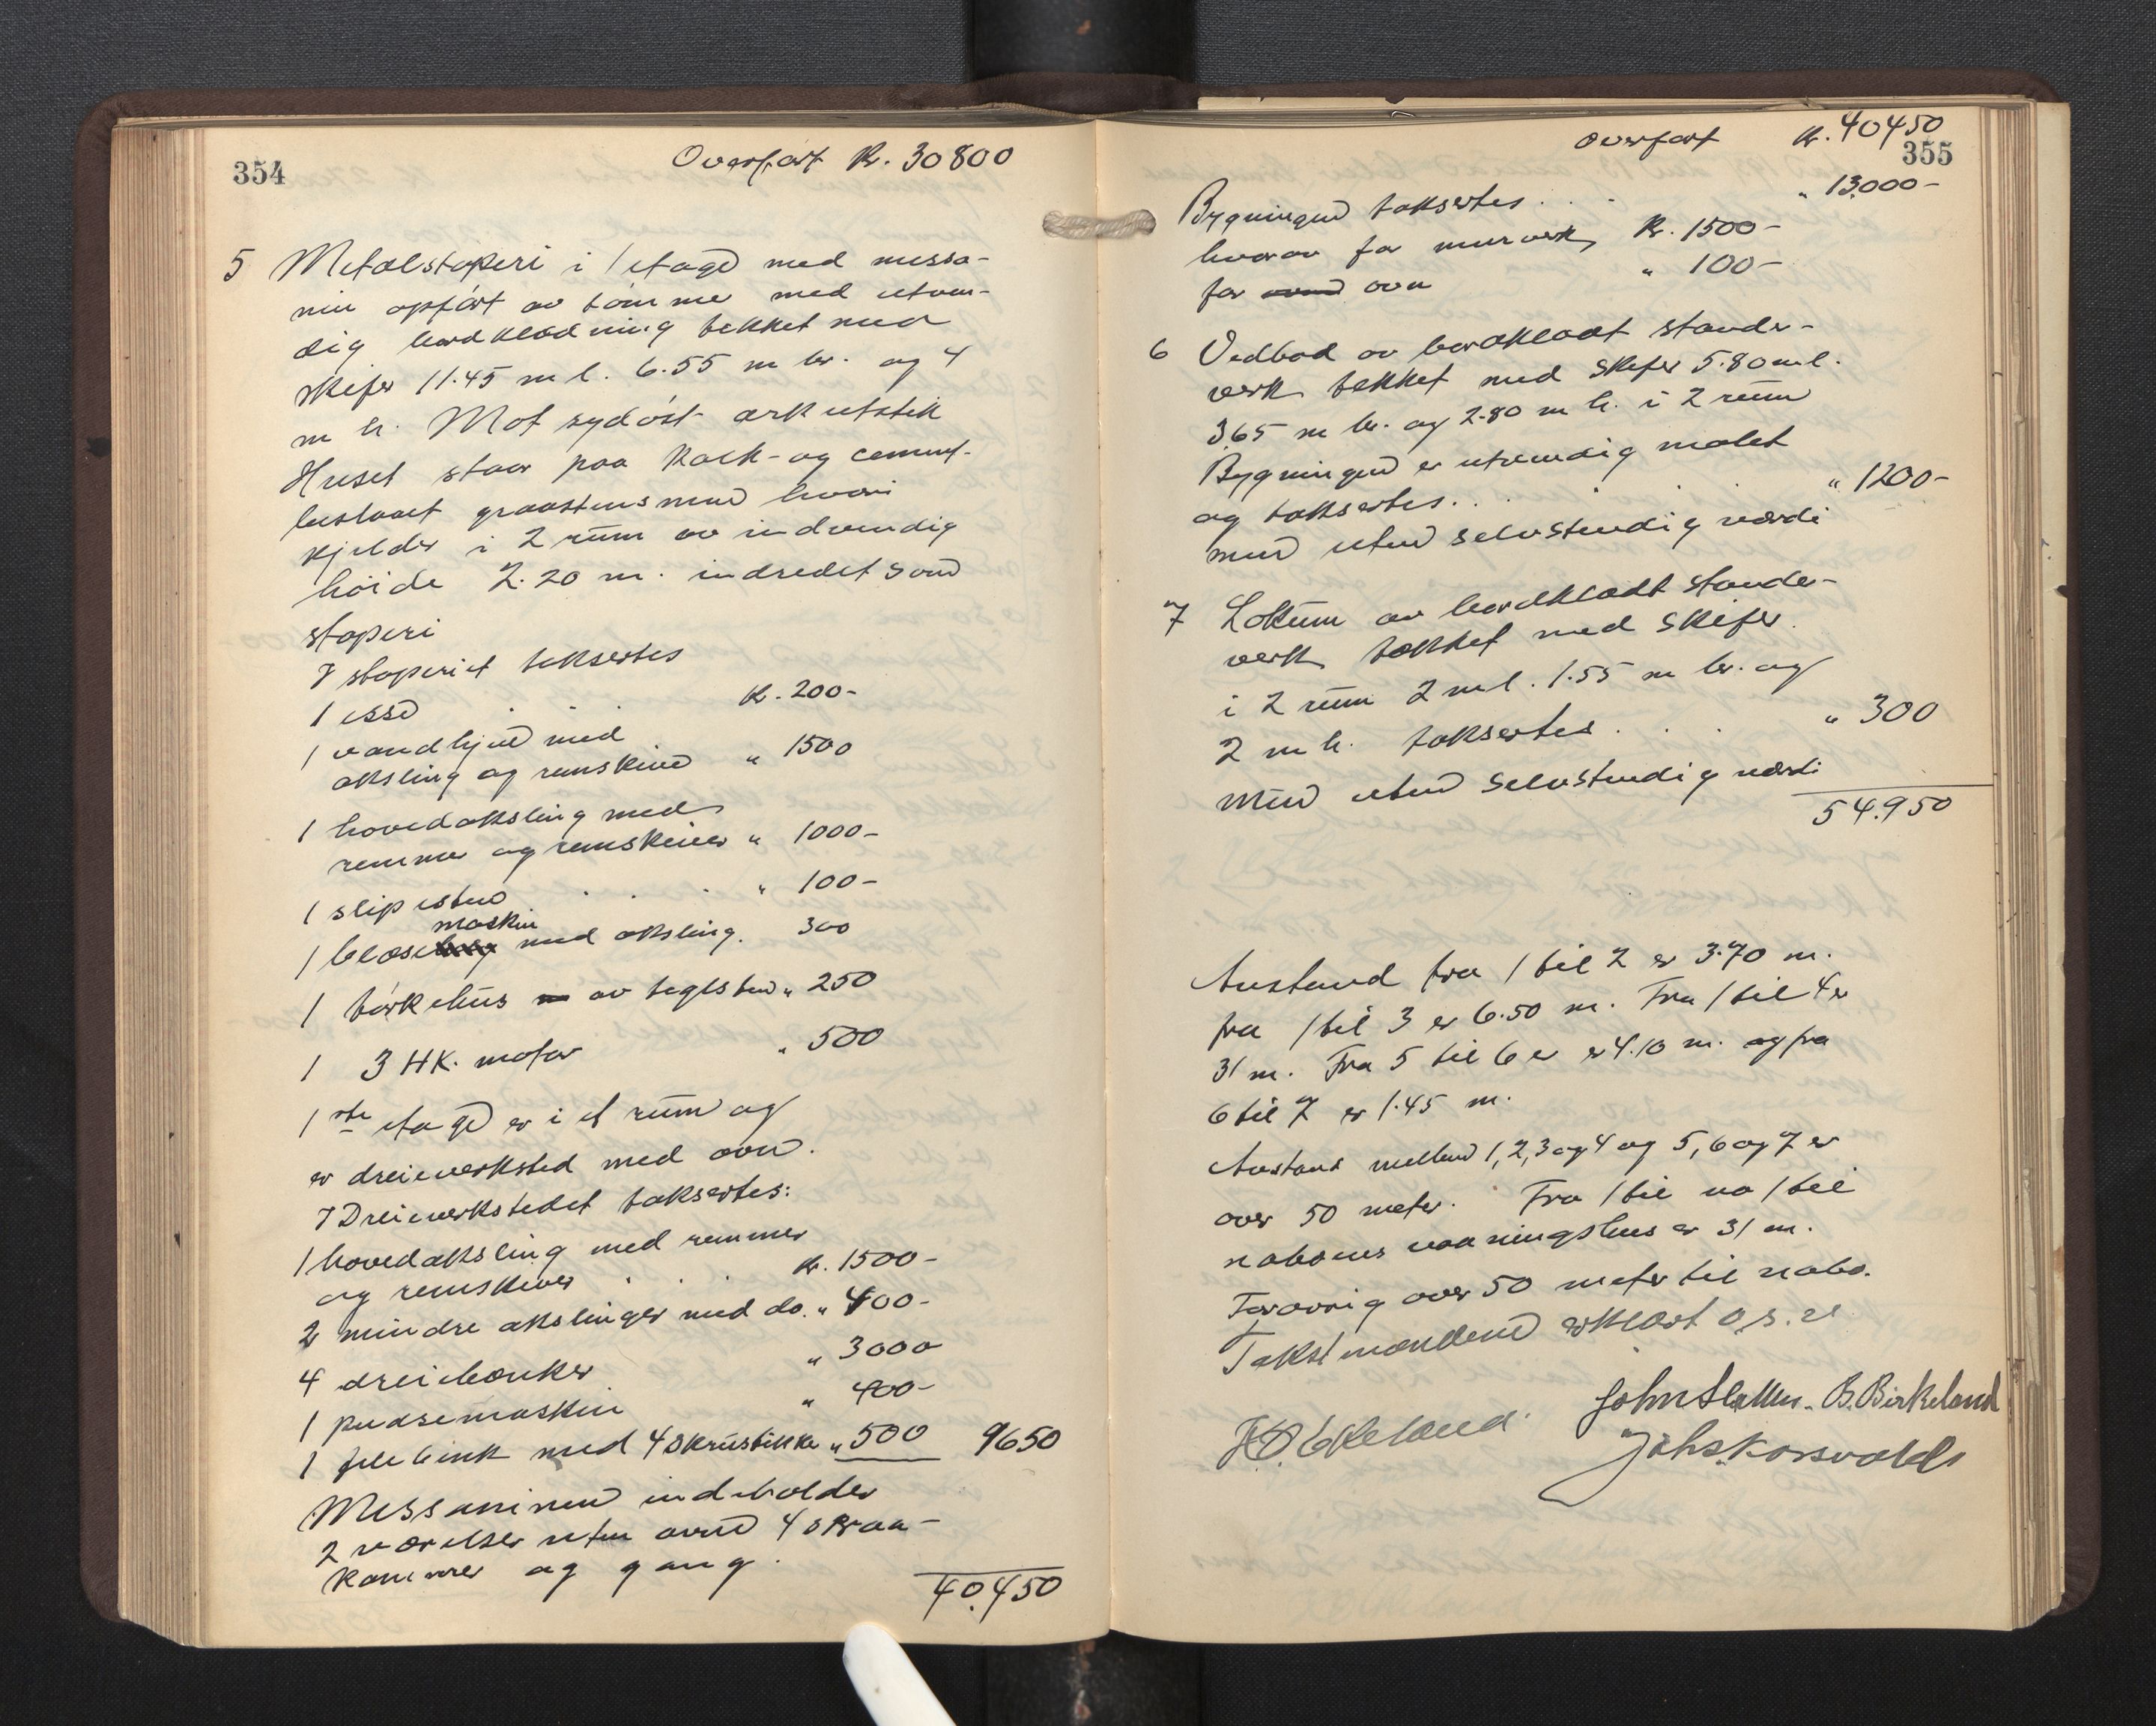 354
Overført Kr. 30800
5 Metalstøperi i 1 etage med messa-
nin opført av tømmer med utven-
dig bordklædning tækket med
skifer 11.45 m l. 6.55 m br. og 4
m h. Mot sydøst arkutstik
Huset staar paa kalk- og cement-
beslaaet graastensmur hvori
kjelder i 2 rum av indvendig
høide 2.20 m. indredet som
støperi
I støperiet takseres
1 esse . . . Kr. 200-
1 vandhjul med
aksling og remskive " 1500
1 hovedaksling med
remmer og remskiver " 1000-
1 slipesten . . " 100-
maskin
1 blæse med aksling. 300
1 tørkehus av teglsten " 250
1 3 HK. motor " 500
1ste etage er i et rum og
er dreieverksted med ovn.
I Dreieverkstedet takseres:
1 hovedaksling med remmer
og remskiver . . . Kr. 1500-
2 mindre akslinger med do. " 400-
4 dreiebænker " 3000
1 pudsemaskin " 400-
1 filebænk med 4 skrustikker " 500 9650
Messaninen indeholder
2 værelser uten ovne 4 skraa-
kammer og gang.
40.450
Overført Kr. 40450
355
Bygningen takseres . . " 13000-
hvorav for murverk Kr. 1500-
for ovn " 100-
6 Vedbod av bordklædt stender-
verk tækket med skifer 5.80 m l.
3.65 m br. og 2.80 m h. i 2 rum
Bygningen er utvendig malet
og takseres . . . " 1200-
mur uten selvstendig værdi
7 Lokum av bordklædt stender-
verk tækket med skifer.
i 2 rum 2 m l. 1.55 m br. og
2 m h. takseres . . . " 300
mur uten selvstendig værdi
54.950
Avstand fra 1 til 2 er 3.70 m.
fra 1 til 3 er 6.50 m. Fra 1 til 4 er
31 m. Fra 5 til 6 er er 4.10 m. og fra
6 til 7 er 1.45 m.
Avstand mellem 1, 2, 3 og 4 og 5, 6 og 7 er
over 50 meter. Fra 1 til na 1 til
naboens vaaningshus er 31 m.
Forøvrig over 50 meter til nabo.
Takstmændene erklært o, s. v.
John B. Birkeland
Johs. Korsvold